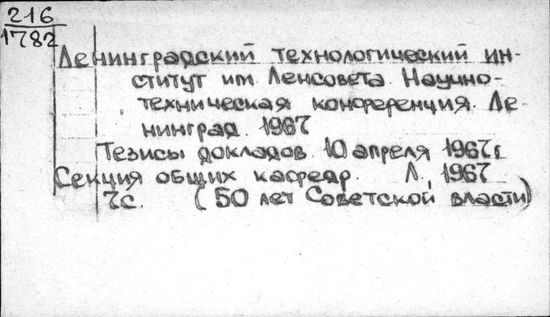 216
1782
Ленинградский технологический ин-
ститут им. Ленсовета. Научно-
техническая конференция. Ле-
нинград. 1967
Тезисы докладов. 10 апреля 1967г.
Секция общих кафедр. Л., 1967
7с. (50 лет Советской власти)